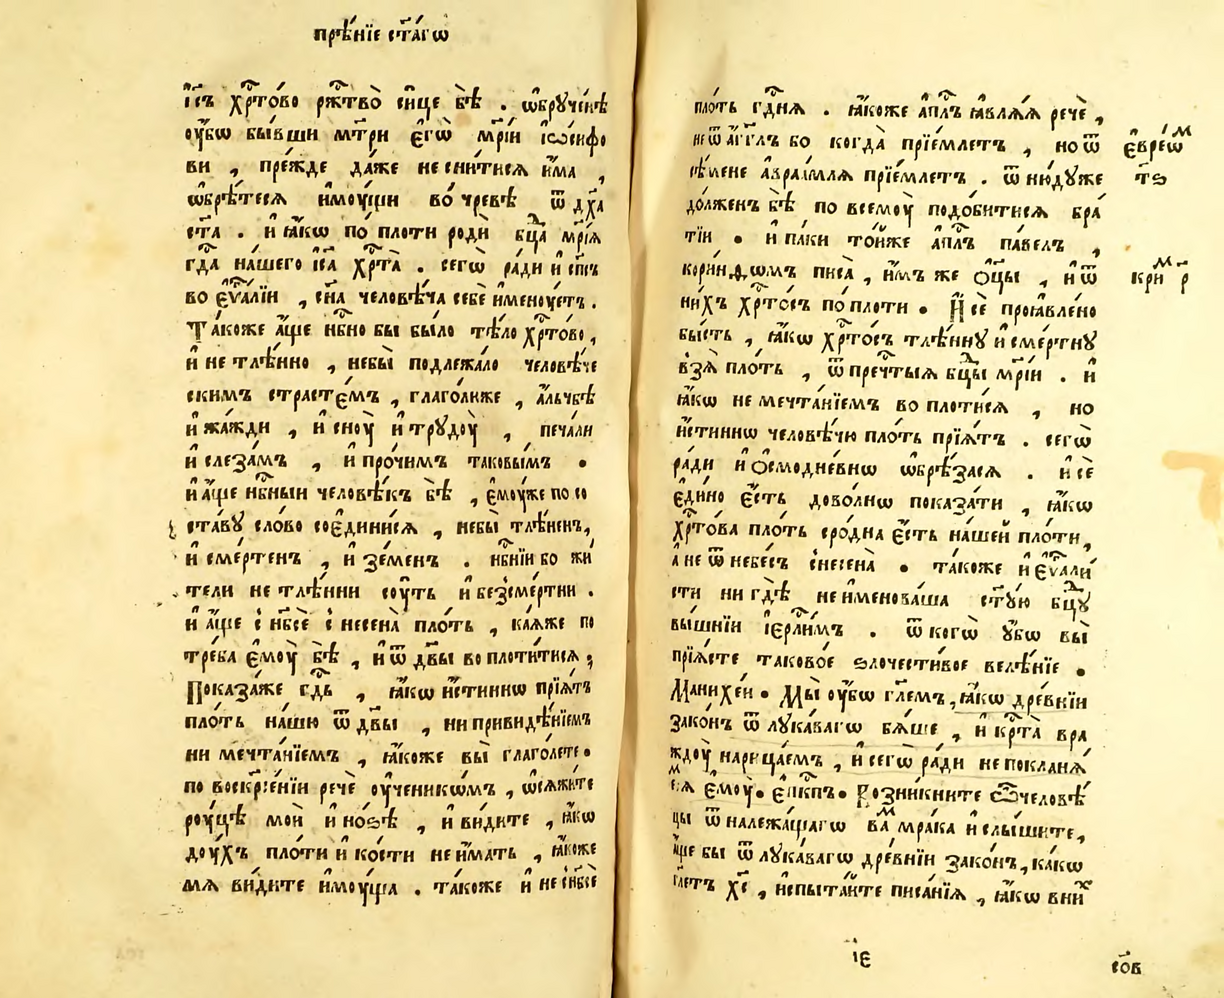 прѣ́нїе ст҃а́гѡ
і҆и҃съ хр҃то́во рж҃тво̀ си́це бѣ̀ . ѡ҆брꙋче́нѣ
оу҆́бѡ бы́вши мт҃ри є҆гѡ̀ мр҃і́и і҆ѡ́сифо
ви , пре́жде да́же не сни́тися и҆́ма ,
ѡ҆брѣ́теся и҆моу́щи во́ чревѣ ѿ дх҃а
ст҃а . и҆ ꙗ҆́кѡ по́ плоти родѝ бц҃а мр҃і́я
гд҃а на́шего і҆и҃са хр҃та̀ . сегѡ̀ ра́ди и҆ сп҃съ
во є҆ѵ҃а́лїи , сн҃а человѣ́ча себѐ и҆мену́етъ .
Та́коже а҆́ще нб҃но бы бы́ло тѣ́ло хр҃то́во ,
и҆ не тлѣ́нно , небы̀ подлежа́ло человѣ́че
скимъ страсте́мъ , глаго́лиже , а҆́льчбѣ
и҆ жа́жди , и҆ сноу̀ и҆ трꙋдоу̀ , печа́ли
и҆ слеза́мъ , и҆ про́чимъ таковы́мъ .
и҆ а҆́ще нб҃ныи человѣ́къ бѣ̀ , є҆моу́же по со
ста́вꙋ сло́во соє҆дини́ся , небы̀ тлѣ́ненъ ,
и҆ сме́ртенъ , и҆ зе́менъ . нб҃нїи бо жи́
тели не тлѣ́нни соу́ть и҆ безсме́ртни .
и҆ а҆́ще с нб҃сѐ с несена̀ пло́ть , ка́яже по
тре́ба є҆моу̀ бѣ̀ , и҆ ѿ дв҃ы во плоти́тися ;
Показа́же гд҃ь , ꙗ҆́кѡ и҆́стиннѡ прїѧ́тъ
пло́ть на́шю ѿ дв҃ы , ни привидѣ́нїемъ
ни мечта́нїемъ , ꙗ҆́коже вы̀ глаго́лете .
по воскр҃се́нїи речѐ оу҆ченикѡ́мъ , ѡ҆сяжи́те
роу́цѣ моѝ и҆ но́ѕѣ , и҆ ви́дите , ꙗ҆́кѡ
доу́хъ пло́ти и҆ ко́сти не и҆́мать , ꙗ҆́коже
мя ви́дите и҆моу́ща . та́коже и҆ не с нб҃сѐ
пло́ть гд҃ня . ꙗ҆́коже а҆п҃лъ ꙗ҆вля́я речѐ ,
не ѿ а҆́гг҃лъ бо когда̀ прїе́млетъ , но ѿ
сѣ́мене а҆враа́мля прїе́млетъ . ѿ ню́дуже
до́лженъ бѣ̀ по всемоу̀ подо́битися бра́
тїи . и҆ па́ки то́йже а҆п҃лъ па́велъ ,
кори́нѳѡмъ писа̀ , и҆́мъ же ѻ҆ц҃ы , и҆ ѿ
ни́хъ хр҃то́съ по́ плоти . И҆ сѐ проꙗвле́но
бы́сть , ꙗ҆́кѡ хр҃то́съ тлѣ́ннꙋ и҆ сме́ртнꙋ
взя̀ пло́ть , ѿ преч҃тыя бц҃ы мр҃і́и . и҆
ꙗ҆́кѡ не мечта́нїемъ во плоти́ся , но
и҆́стиннѡ человѣ́чю пло́ть прїѧ́тъ . сегѡ̀
ра́ди и҆ ѻ҆смодне́внѡ ѡ҆брѣ́зася . и҆ сѐ
є҆ди́но є҆́сть дово́лнѡ показа́ти , ꙗ҆́кѡ
хр҃то́ва пло́ть сро́дна є҆́сть на́шей пло́ти ,
а҆ не ѿ небе́съ снесена̀ . та́коже и҆ є҆ѵ҃али́
сти ни гдѣ̀ не и҆менова́ша ст҃ꙋ́ю бц҃ꙋ
вы́шнїи і҆ер҃ли́мъ . ѿ когѡ̀ ꙋ҆́бѡ вы̀
прїя́сте таково́е ѕлочести́вое велѣ́нїе .
Манихе́и . Мы̀ оу҆́бѡ гл҃емъ , ꙗ҆́кѡ дре́внїи
зако́нъ ѿ лꙋка́вагѡ бя́ше , и҆ кр҃та̀ вра
ждоу̀ нарица́емъ , и҆ сегѡ̀ ра́ди не покланя́
емся є҆моу̀ . є҆п҃кпъ . Возни́кните ѽ человѣ́
цы ѿ належа́щагѡ ва́мъ мра́ка и҆ слы́шите ,
а҆́ще бы ѿ лꙋка́вагѡ дре́внїи зако́нъ , ка́кѡ
гл҃етъ хс҃ , и҆спыта́йте писа́нїя , ꙗ҆́кѡ в ни́х
є҆вре́ѡм
тѕ
кри́м р
є҃і
сѡв